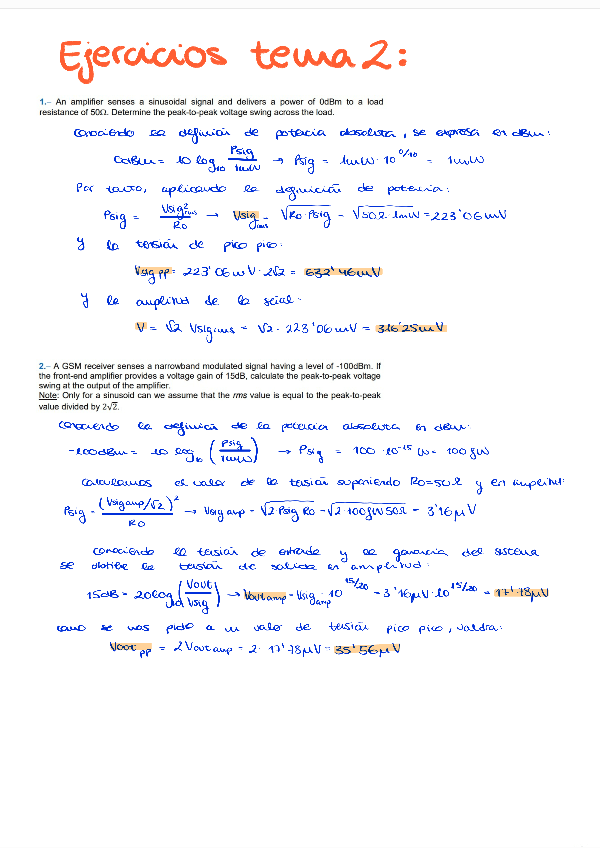 Ejercicios tema 2:
1.– An amplifier senses a sinusoidal signal and delivers a power of 0dBm to a load
resistance of 50Ω. Determine the peak-to-peak voltage swing across the load.
Conociendo la definición de potencia absoluta, se expresa en dBm:
0dBm = 10 log10 Psig/1mW → Psig = 1mW · 10^0/10 = 1mW
Por tanto, aplicando la definición de potencia:
Psig = Vsig²rms/R0 → Vsigrms = √R0·Psig = √50Ω·1mW = 223'06mV
y la tensión de pico pico:
Vsig pp = 223'06mV · 2√2 = 632'46mV
y la amplitud de la señal:
V = √2 Vsigrms = √2 · 223'06mV = 316'25mV
2.– A GSM receiver senses a narrowband modulated signal having a level of -100dBm. If
the front-end amplifier provides a voltage gain of 15dB, calculate the peak-to-peak voltage
swing at the output of the amplifier.
Note: Only for a sinusoid can we assume that the rms value is equal to the peak-to-peak
value divided by 2√2.
Conociendo la definición de la potencia absoluta en dBm:
-100dBm = 10 log10 (Psig/1mW) → Psig = 100 · 10^-15 W = 100fW
Calculamos el valor de la tensión suponiendo R0=50Ω y en amplitud:
Psig = (Vsigamp/√2)²/R0 → Vsigamp = √2·Psig R0 = √2·100fW 50Ω = 3'16μV
Conociendo la tensión de entrada y la ganancia del sistema
se obtiene la tensión de salida en amplitud:
15dB = 20log10 (Vout/Vsig) → Voutamp = Vsigamp · 10^15/20 = 3'16μV · 10^15/20 = 17'78μV
como se nos pide a un valor de tensión pico pico, valdrá:
Voutpp = 2Voutamp = 2 · 17'78μV = 35'56μV